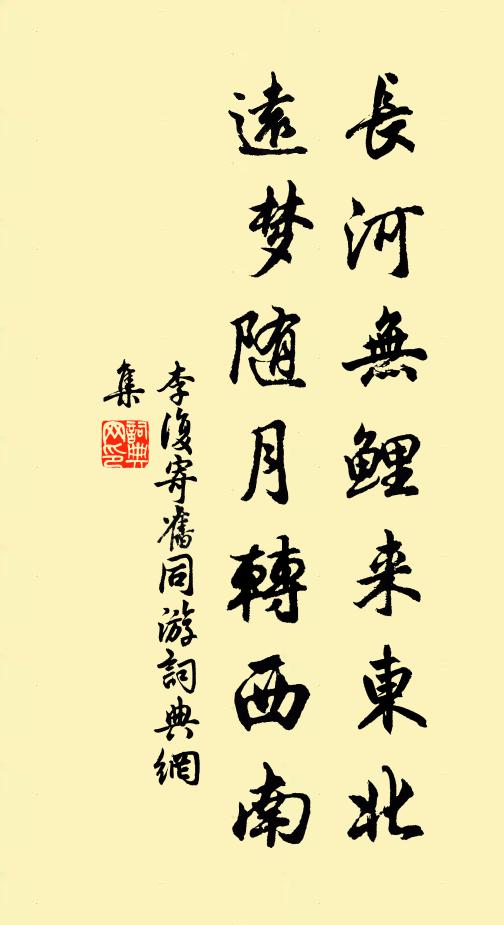 長河無鯉来東北
遠梦随月轉西南
李復寄舊同游詞典網
集
詞典
网印